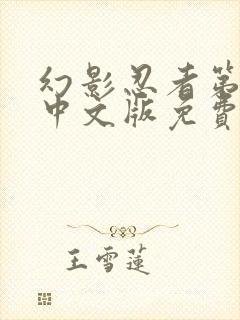 幻影忍者第
中文版免费
王雪莲